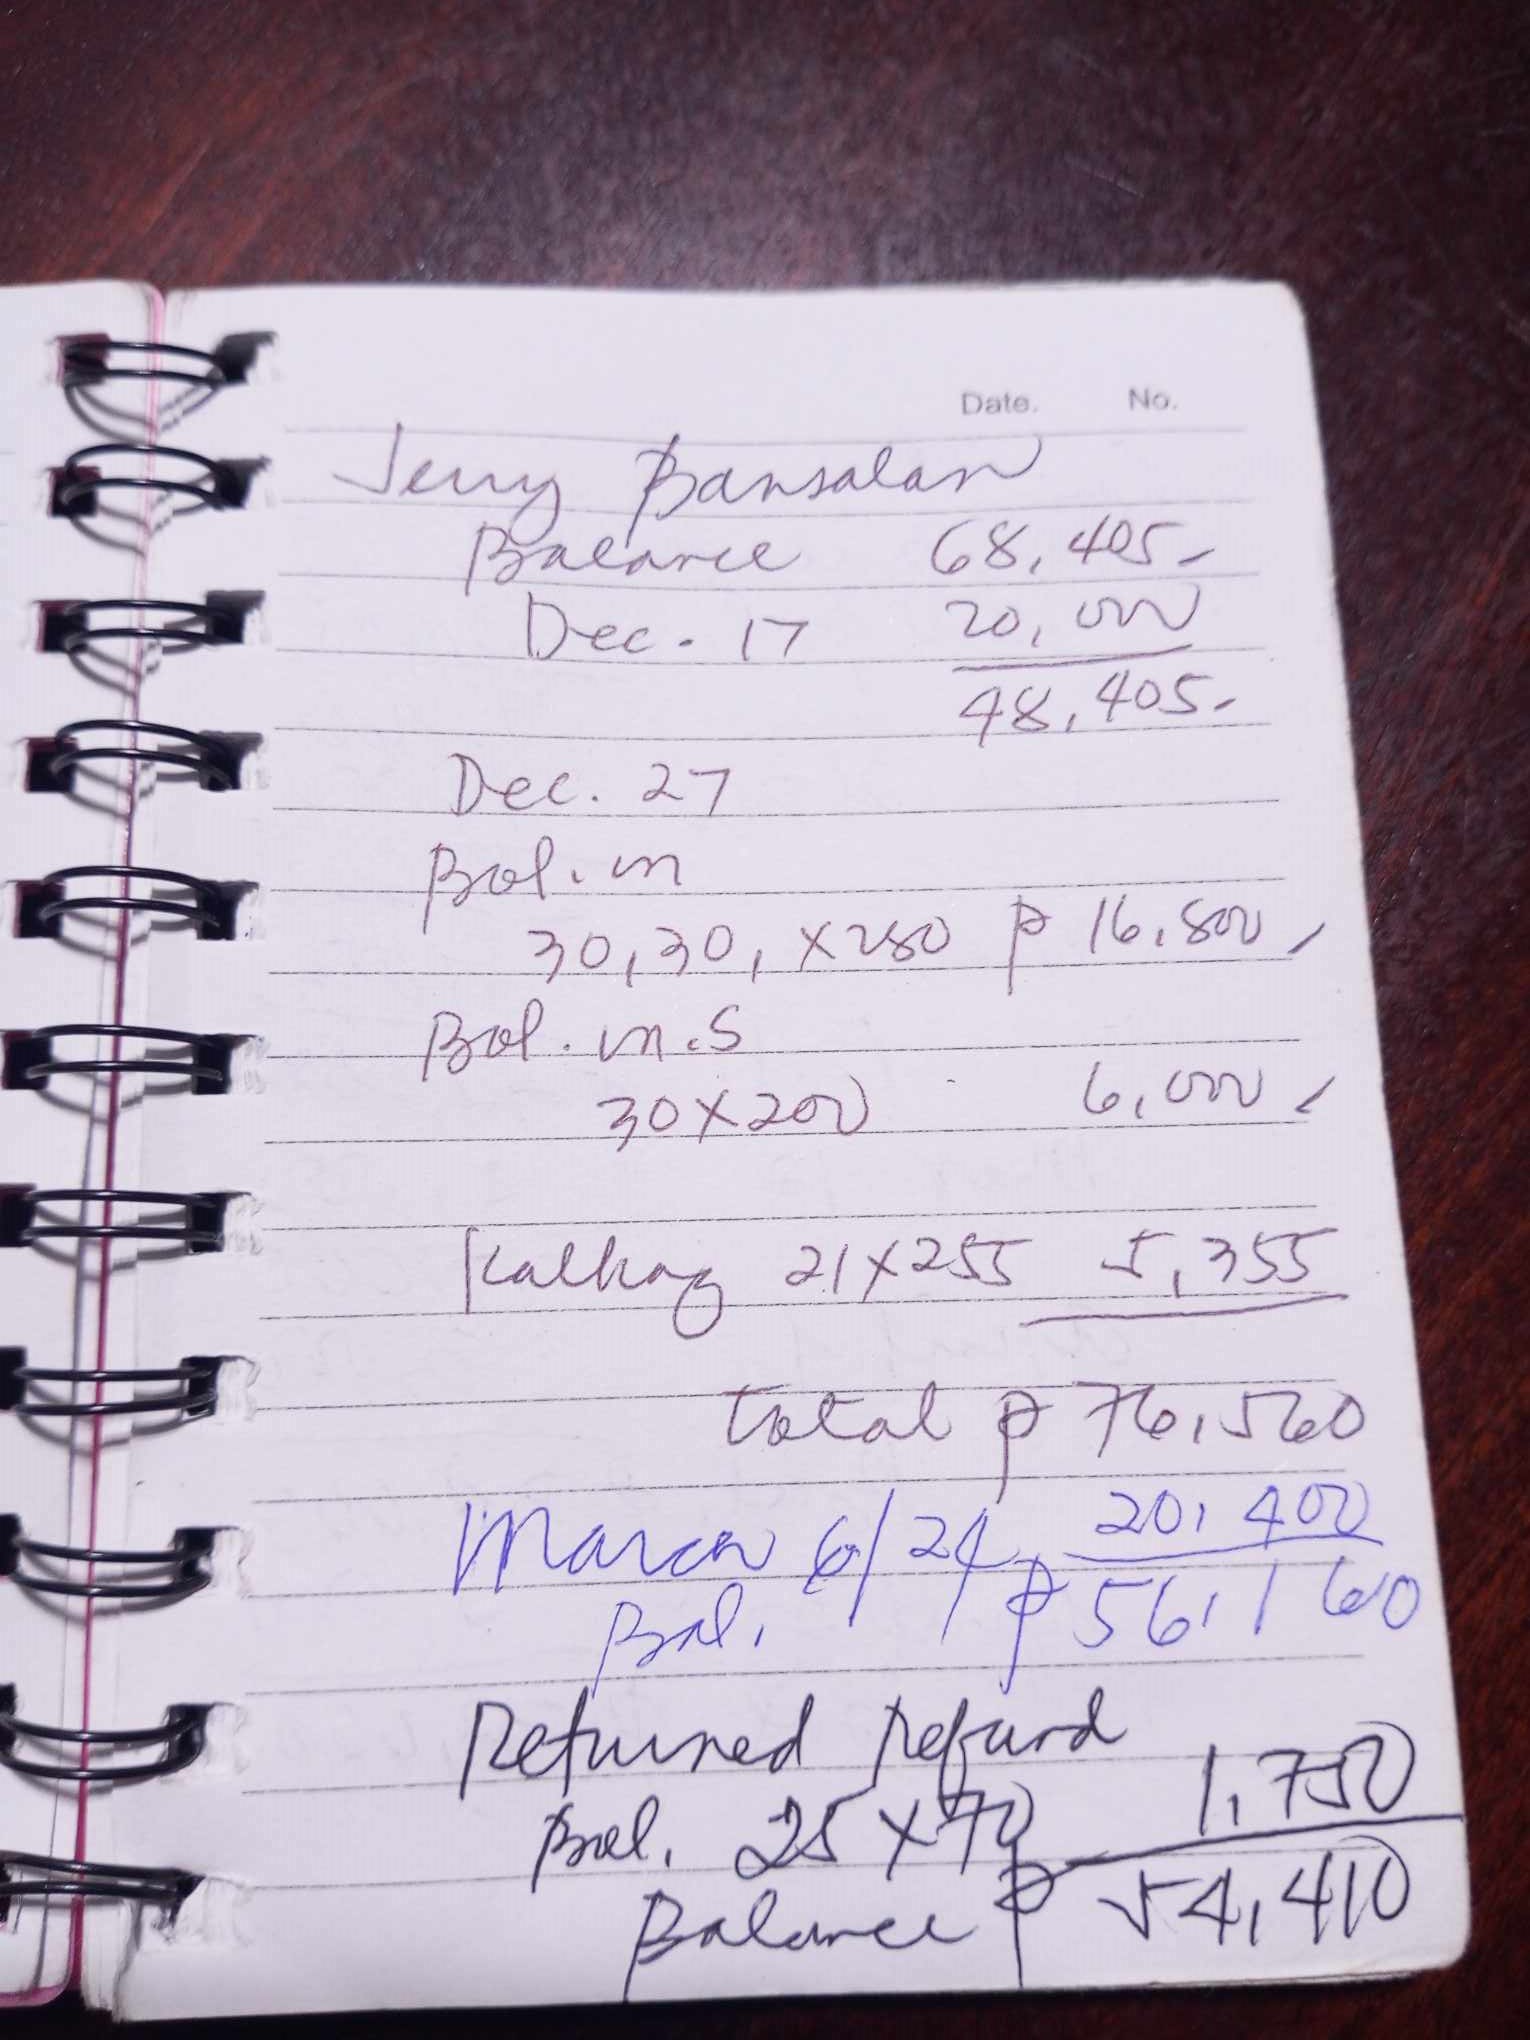 Date. No.
Jerry Bansalan
Balance 68,405-
Dec. 17 20,000
48,405-
Dec. 27
Bol. m
30,30, x280 ₱ 16,800,
Bol. m.S
30x200 6,000,
Kalkag 21x255 5,355
total ₱ 76,560
March 6/24 20,400
Bal. ₱ 56,160
Returned Refund
Bol. 25 x 70 1,750
Balance ₱ 54,410